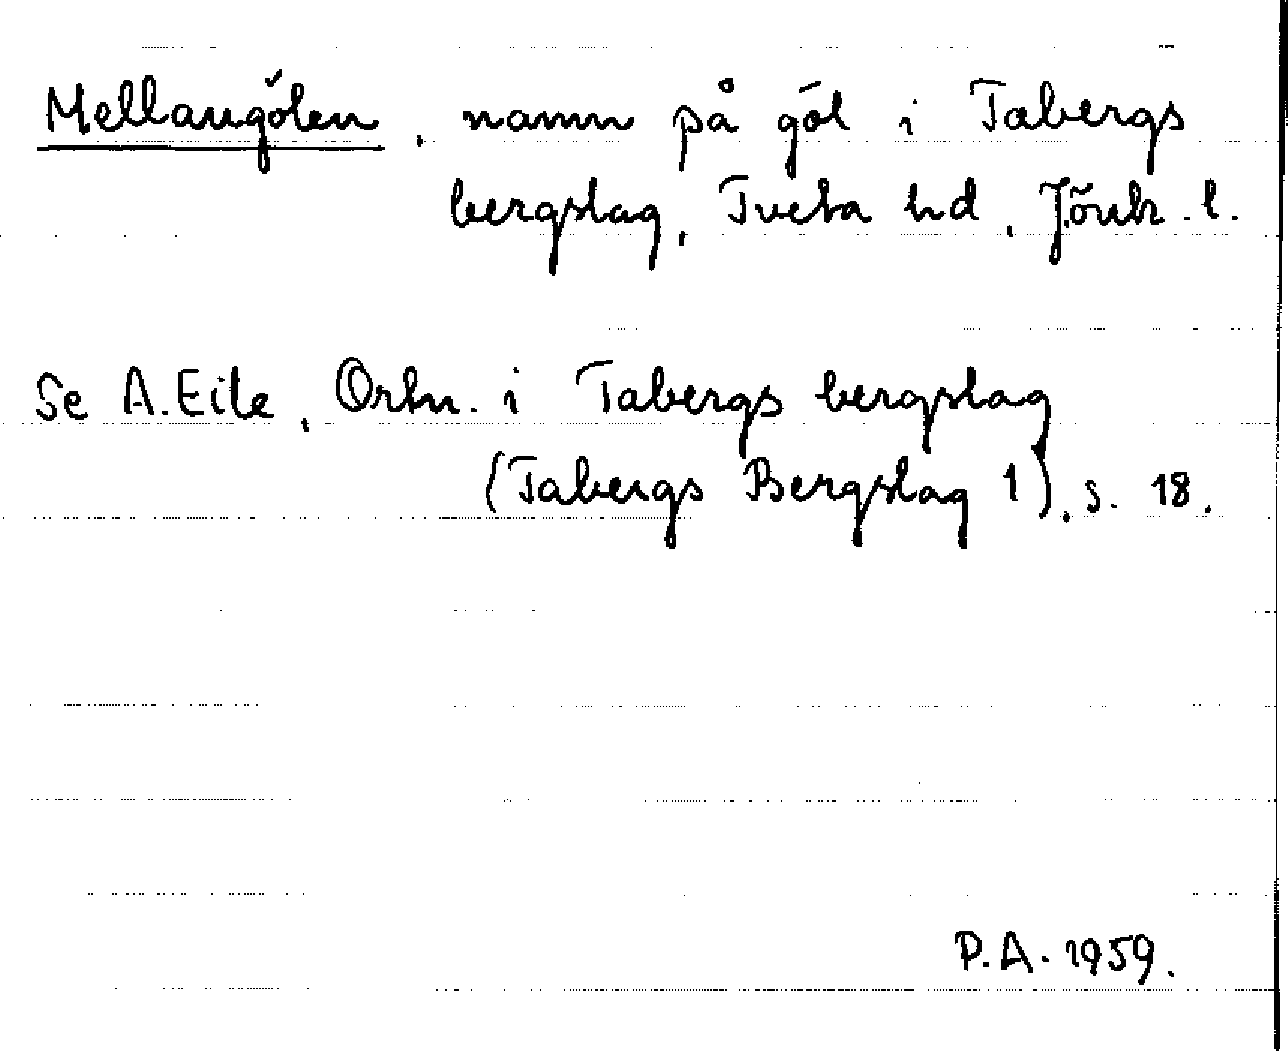 Mellangölen, namn på göl i Tabergs
bergslag, Tveta hd, Jönk. l.
Se A. Eile, Ortn. i Tabergs bergslag
(Tabergs Bergslag 1), s. 18.
P.A. 1959.